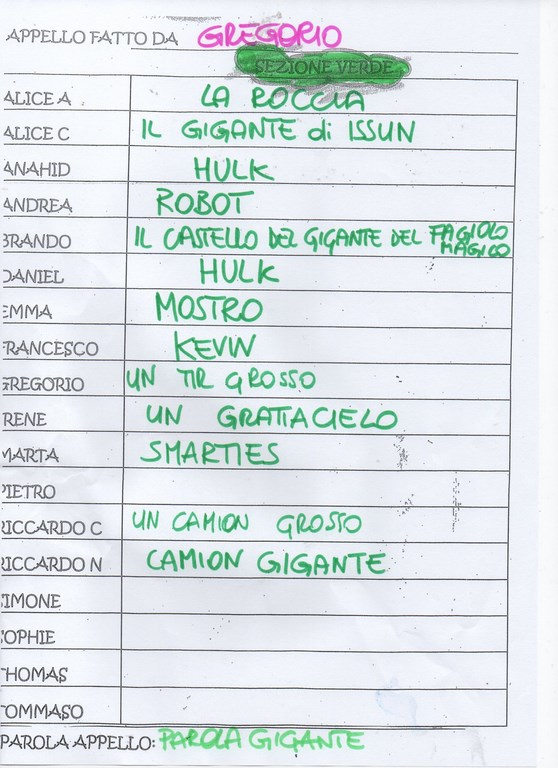 APPELLO FATTO DA GREGORIO
SEZIONE VERDE
ALICE A LA ROCCIA
ALICE C IL GIGANTE di ISSUN
ANAHID HULK
ANDREA ROBOT
BRANDO IL CASTELLO DEL GIGANTE DEL FAGIOLO MAGICO
DANIEL HULK
EMMA MOSTRO
FRANCESCO KEVIN
GREGORIO UN TIR GROSSO
IRENE UN GRATTACIELO
MARTA SMARTIES
PIETRO
RICCARDO C UN CAMION GROSSO
RICCARDO N CAMION GIGANTE
SIMONE
SOPHIE
THOMAS
TOMMASO
PAROLA APPELLO: PAROLA GIGANTE